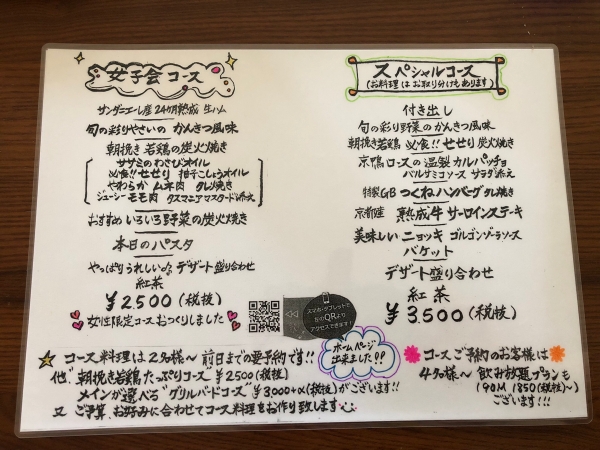 女子会コース
サンダニエーレ産24ヶ月熟成 生ハム
旬の彩りやさいの かんきつ風味
朝挽き若鶏の炭火焼き
ササミのわさびオイル
必食!!せせり 柚子こしょうオイル
やわらか ムネ肉 タレ焼き
ジューシーモモ肉 タスマニアマスタード添え
おすすめ いろいろ野菜の炭火焼き
本日のパスタ
やっぱりうれしい♪ デザート盛り合わせ
紅茶
¥2500(税抜)
女性限定コースおつくりしました
スペシャルコース
(お料理はお取り分けもあります)
付き出し
旬の彩り野菜のかんきつ風味
朝挽き若鶏 必食!!せせり炭火焼き
京鴨ロースの温製カルパッチョ
バルサミコソース サラダ添え
特製GB つくねハンバーグタレ焼き
京都産 熟成牛 サーロインステーキ
美味しい ニョッキ ゴルゴンゾーラソース
バケット
デザート盛り合わせ
紅茶
¥3500(税抜)
スマホ・タブレットで
左のQRより
アクセスできます!
ホームページ
出来ました!?
コース料理は2名様〜前日までの要予約です!!
他"朝挽き若鶏たっぷりコース"¥2500(税抜)
メインが選べる"グリルバードコース"¥3000+α(税抜)がございます!!
又ご予算、お好みに合わせてコース料理をお作り致します
コースご予約のお客様は
4名様〜飲み放題プランも
(90M 1850(税抜)〜)
ございます!!!